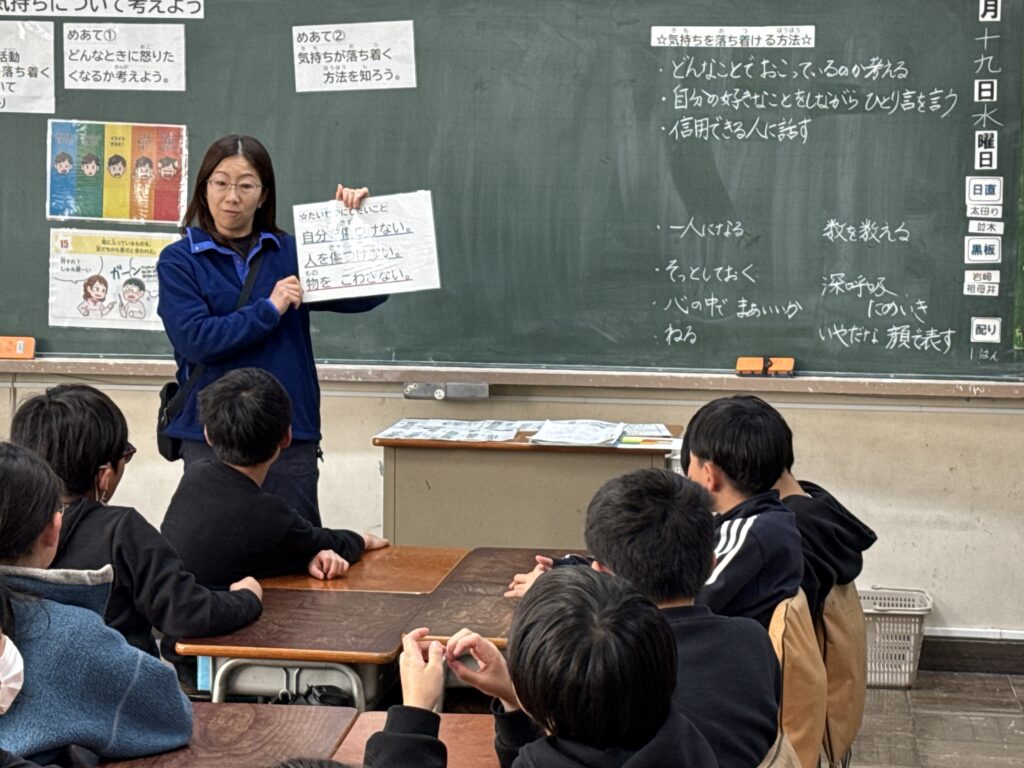 気持ちについて考えよう
活動
落ち着く
いて
り
めあて①
どんなときに怒りた
くなるか考えよう。
めあて②
気持ちが落ち着く
方法を知ろう。
15
ガーン
☆たいせつにしたいこと
自分を傷つけない。
人を傷つけない。
物を こわさない。
☆気持ちを落ち着ける方法☆
・どんなことで おこっているのか考える
・自分の好きなことをしながら ひとり言を言う
・信用できる人に話す
・一人になる
・そっとしておく
・心の中で まぁいいか
・ねる
数を数える
深呼吸
ためいき
いやだな 顔で表す
月
十
九
日
水
曜
日
日直
太田り
並木
黒板
岩﨑
祖母井
配り
1はん